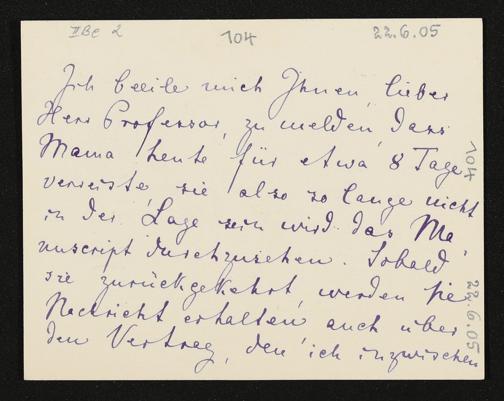 II Be 2
104
22.6.05
Ich beeile mich Ihnen, lieber
Herr Professor, zu melden, dass
Mama heute für etwa 8 Tage
verreiste, sie also so lange nicht
in der Lage sein wird das Ma-
nuscript durchzusehen. Sobald
sie zurückgekehrt, werden Sie
Nachricht erhalten auch über
den Vertrag, den ich inzwischen
104
22.6.05